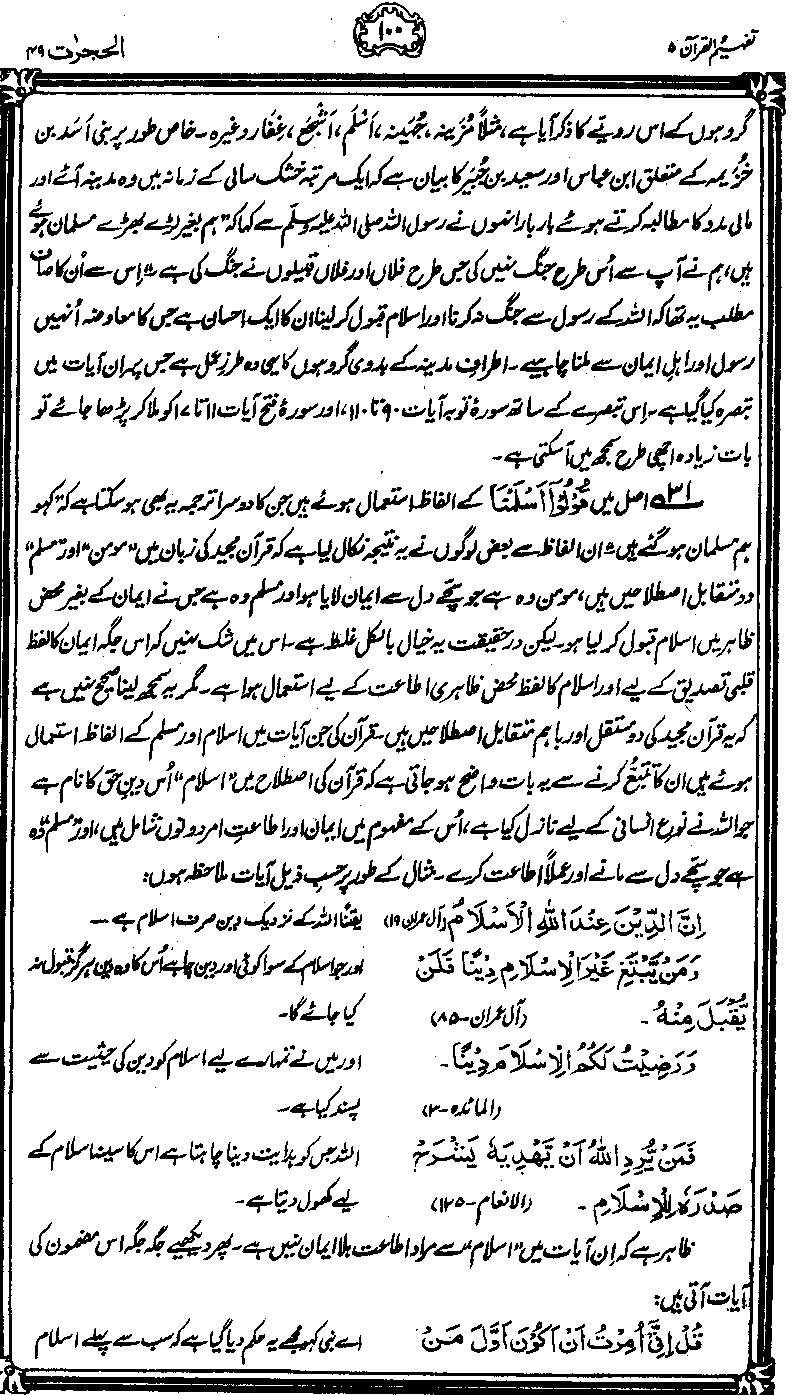 تفہیم القرآن ۵
۱۰۰
الحجرٰت ۴۹
گروہوں کے اس رویّے کا ذکر آیا ہے، مثلاً مُزَینہ، جُہَینہ، اَسْلَم، اَشْجَع، غِفَار وغیرہ۔ خاص طور پر بنی اَسَد بن
خُزَیمہ کے متعلق ابن عباس اور سعید بن جُبَیر کا بیان ہے کہ ایک مرتبہ خشک سالی کے زمانہ میں وہ مدینہ آئے اور
مالی مدد کا مطالبہ کرتے ہوئے بار بار انہوں نے رسول اللہ صلی اللہ علیہ وسلم سے کہا کہ "ہم بغیر لڑے بھڑے مسلمان ہوئے
ہیں، ہم نے آپ سے اُس طرح جنگ نہیں کی جس طرح فلاں اور فلاں قبیلوں نے جنگ کی ہے"۔ اِس سے اُن کا صاف
مطلب یہ تھا کہ اللہ کے رسول سے جنگ نہ کرنا اور اسلام قبول کر لینا ان کا ایک احسان ہے جس کا معاوضہ اُنہیں
رسول اور اہلِ ایمان سے ملنا چاہیے۔ اطرافِ مدینہ کے بدوی گروہوں کا یہی وہ طرزِ عمل ہے جس پر ان آیات میں
تبصرہ کیا گیا ہے۔ اس تبصرے کے ساتھ سورۂ توبہ آیات ۹۰ تا ۱۱۰، اور سورۂ فتح آیات ۱۱ تا ۱۷ کو ملا کر پڑھا جائے تو
بات زیادہ اچھی طرح سمجھ میں آ سکتی ہے۔
۳۱ اصل میں قُوْلُوْٓا اَسْلَمْنَا کے الفاظ استعمال ہوئے ہیں جن کا دوسرا ترجمہ یہ بھی ہو سکتا ہے کہ "کہو
ہم مسلمان ہو گئے ہیں"۔ ان الفاظ سے بعض لوگوں نے یہ نتیجہ نکال لیا ہے کہ قرآن مجید کی زبان میں "مومن" اور "مسلم"
دو متقابل اصطلاحیں ہیں، مومن وہ ہے جو سچے دل سے ایمان لایا ہو اور مسلم وہ ہے جس نے ایمان کے بغیر محض
ظاہر میں اسلام قبول کر لیا ہو۔ لیکن درحقیقت یہ خیال بالکل غلط ہے۔ اس میں شک نہیں کہ اس جگہ ایمان کا لفظ
قلبی تصدیق کے لیے اور اسلام کا لفظ محض ظاہری اطاعت کے لیے استعمال ہوا ہے۔ مگر یہ سمجھ لینا صحیح نہیں ہے
کہ یہ قرآن مجید کی دو مستقل اور باہم متقابل اصطلاحیں ہیں۔ قرآن کی جن آیات میں اسلام اور مسلم کے الفاظ استعمال
ہوئے ہیں ان کا تتبُّع کرنے سے یہ بات واضح ہو جاتی ہے کہ قرآن کی اصطلاح میں "اسلام" اُس دینِ حق کا نام ہے
جو اللہ نے نوعِ انسانی کے لیے نازل کیا ہے، اُس کے مفہوم میں ایمان اور اطاعتِ امر دونوں شامل ہیں، اور "مسلم" وہ
ہے جو سچے دل سے مانے اور عملاً اطاعت کرے۔ مثال کے طور پر حسبِ ذیل آیات ملاحظہ ہوں:
اِنَّ الدِّیْنَ عِنْدَ اللّٰہِ الْاِسْلَامُ (آل عمران ۱۹) یقیناً اللہ کے نزدیک دین صرف اسلام ہے۔
وَمَنْ یَّبْتَغِ غَیْرَ الْاِسْلَامِ دِیْنًا فَلَنْ اور جو اسلام کے سوا کوئی اور دین چاہے اُس کا وہ دین ہرگز قبول نہ
یُّقْبَلَ مِنْہُ۔ (آل عمران۔۸۵) کیا جائے گا۔
وَرَضِیْتُ لَکُمُ الْاِسْلَامَ دِیْنًا۔ اور میں نے تمہارے لیے اسلام کو دین کی حیثیت سے
(المائدہ۔۳) پسند کیا ہے۔
فَمَنْ یُّرِدِ اللّٰہُ اَنْ یَّھْدِیَہٗ یَشْرَحْ اللہ جس کو ہدایت دینا چاہتا ہے اس کا سینہ اسلام کے
صَدْرَہٗ لِلْاِسْلَامِ۔ (الانعام۔۱۲۵) لیے کھول دیتا ہے۔
ظاہر ہے کہ اِن آیات میں "اسلام" سے مراد اطاعت بلا ایمان نہیں ہے۔ پھر دیکھیے جگہ جگہ اس مضمون کی
آیات آتی ہیں:
قُلْ اِنِّیْٓ اُمِرْتُ اَنْ اَکُوْنَ اَوَّلَ مَنْ اے نبی کہو مجھے یہ حکم دیا گیا ہے کہ سب سے پہلے اسلام